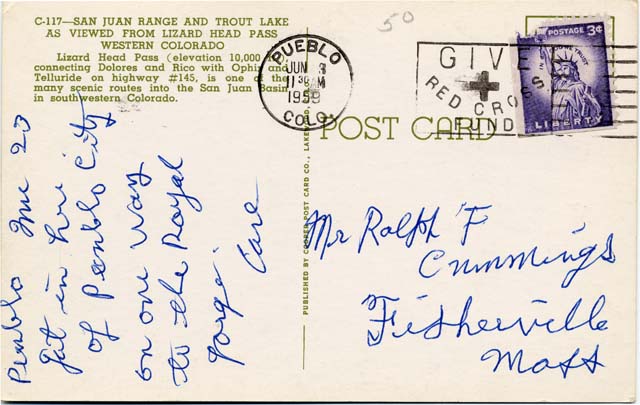 C-117—SAN JUAN RANGE AND TROUT LAKE
AS VIEWED FROM LIZARD HEAD PASS
WESTERN COLORADO
Lizard Head Pass (elevation 10,000
connecting Dolores and Rico with Ophir and
Telluride on highway #145, is one of the
many scenic routes into the San Juan Basin
in southwestern Colorado.
50
PUEBLO
JUN 8
11 30 AM
1959
COLO.
GIVE
RED CROSS
FUND
U.S. POSTAGE 3¢
IN GOD WE TRUST
LIBERTY
POST CARD
PUBLISHED BY COOPER POST CARD CO.,
Pueblo
in
of Pueblo City
on our way
to the Royal
Gorge
Mr Ralph F
Cummings
Fisherville
Mass